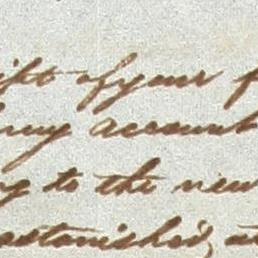 of your
my account
to the new
astonished,